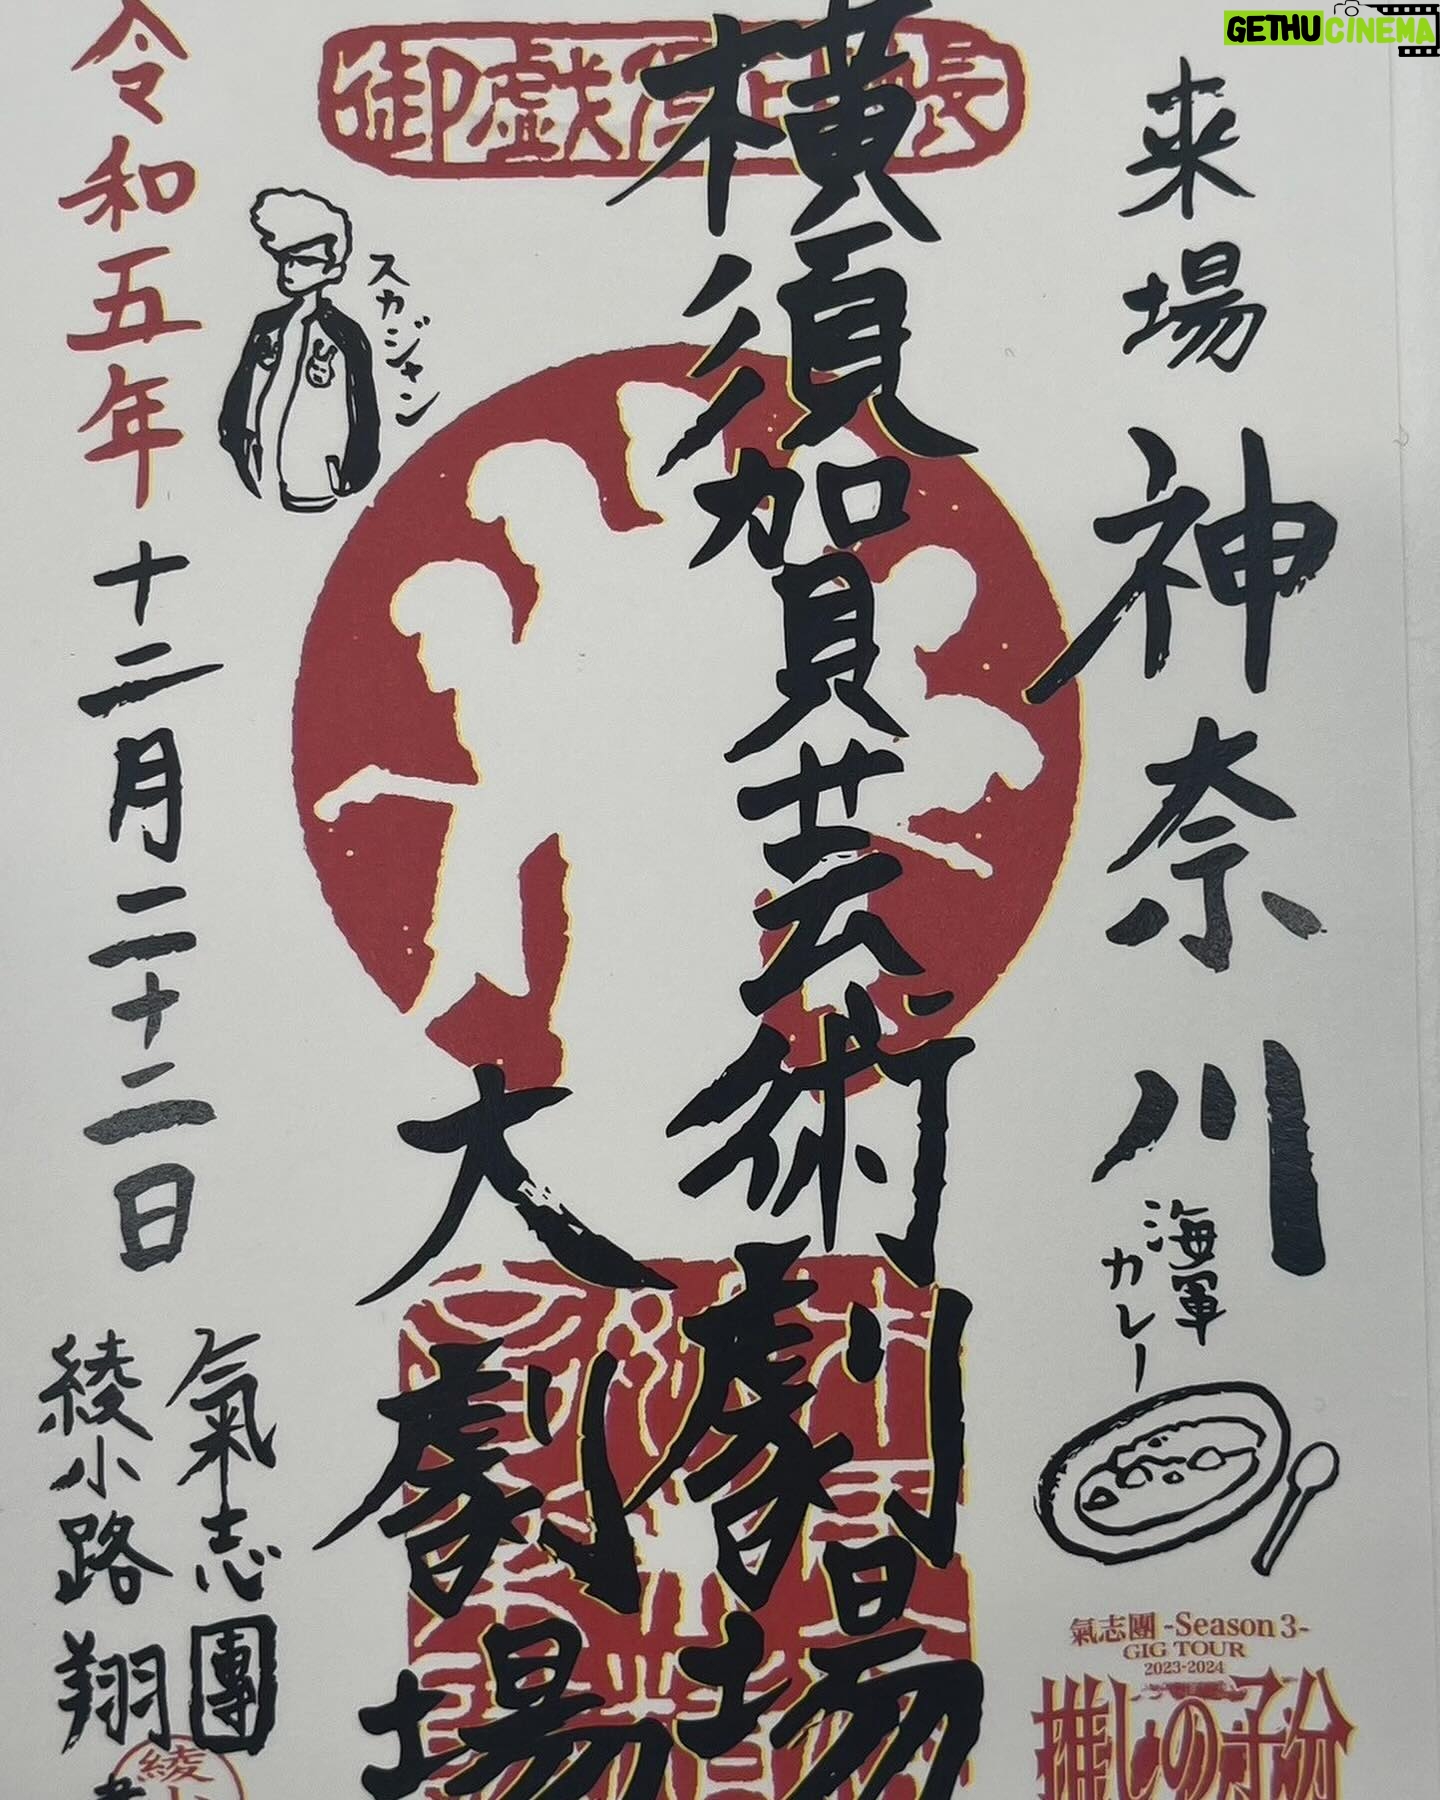 GETHUCINEMA
来場
神奈川
海軍
カレー
氣志團 -Season 3-
GIG TOUR
2023-2024
推しの子分
横須賀芸術劇場
大劇場
スカジャン
令和五年十二月二十二日
氣志團
綾小路 翔